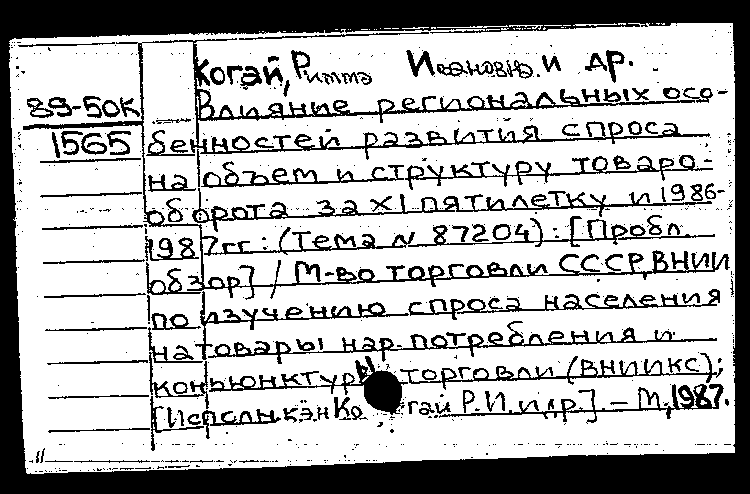 Когай, Римма Ивановна и др.
89-50К
Влияние региональных осо-
1565
бенностей развития спроса
на объем и структуру товаро-
оборота за XI пятилетку и 1986-
1987гг: (Тема N 87204): [Пробл.
обзор] / М-во торговли СССР, ВНИИ
по изучению спроса населения
на товары нар. потребления и
конъюнктуры торговли (ВНИИКС);
[Исполн. к.э.н. Когай Р.И. и др.]. – М., 1987.